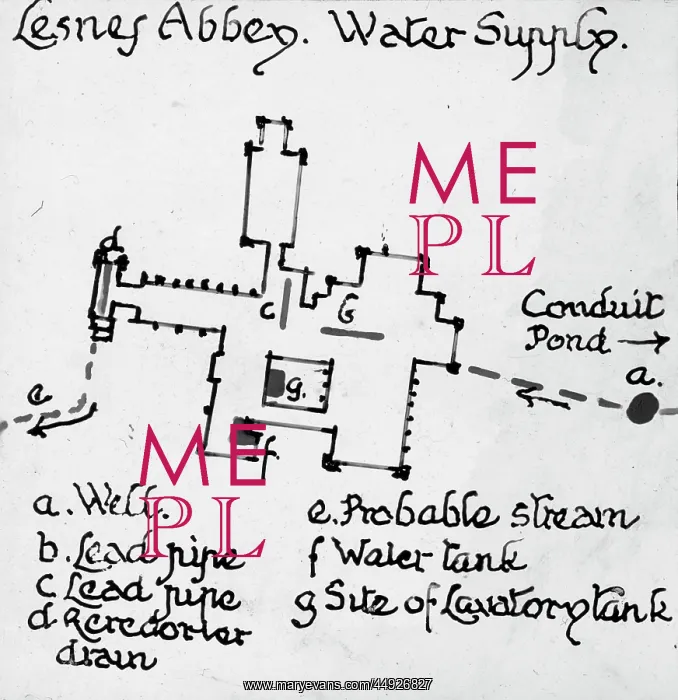 Lesnes Abbey. Water Supply.
ME
PL
d
Conduit
Pond →
c
b
a.
e
g.
f
ME
PL
a. Well.
b. Lead pipe
c Lead pipe
d Reredorter
drain
e. Probable stream
f Water tank
g Site of Lavatory tank
www.maryevans.com/44926827